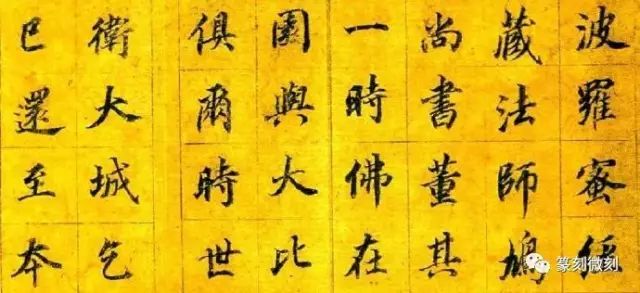 波羅蜜經
藏法師鳩
尚書董其
一時佛在
園與大比
俱爾時世
衛大城乞
已還至本
篆刻微刻